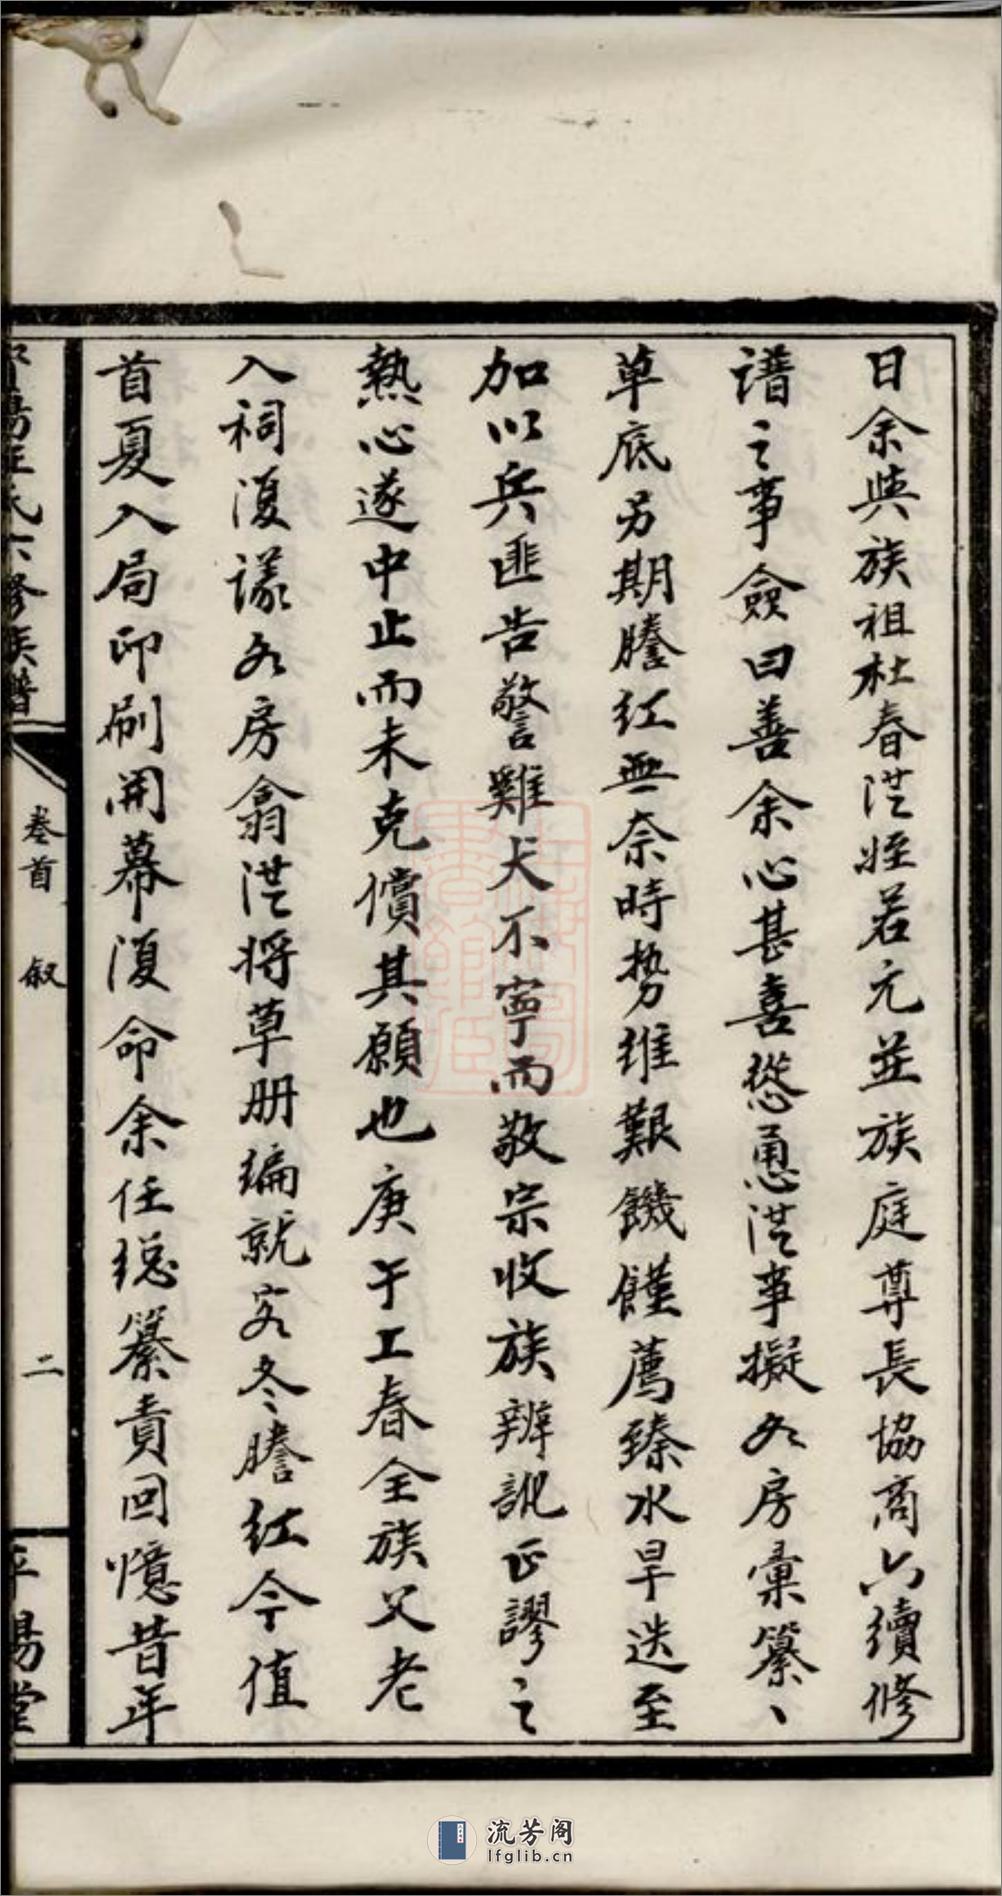 日余與族祖杜春洪姪若元並族庭尊長協商六續修
譜之事僉曰善余心甚喜慫恿洪事擬各房彙纂、
草底另期謄紅無奈時勢維艱饑饉薦臻水旱迭至
加以兵匪告警雞犬不寧而敬宗收族辨訛正謬之
熱心遂中止而未克償其願也庚午工春全族父老
入祠復議各房翕洪將草册编就客冬謄紅今值
首夏入局印刷開幕復命余任総纂責回憶昔年
氏六修族譜
卷首 敘
二
平陽堂
流芳阁
lfglib.cn